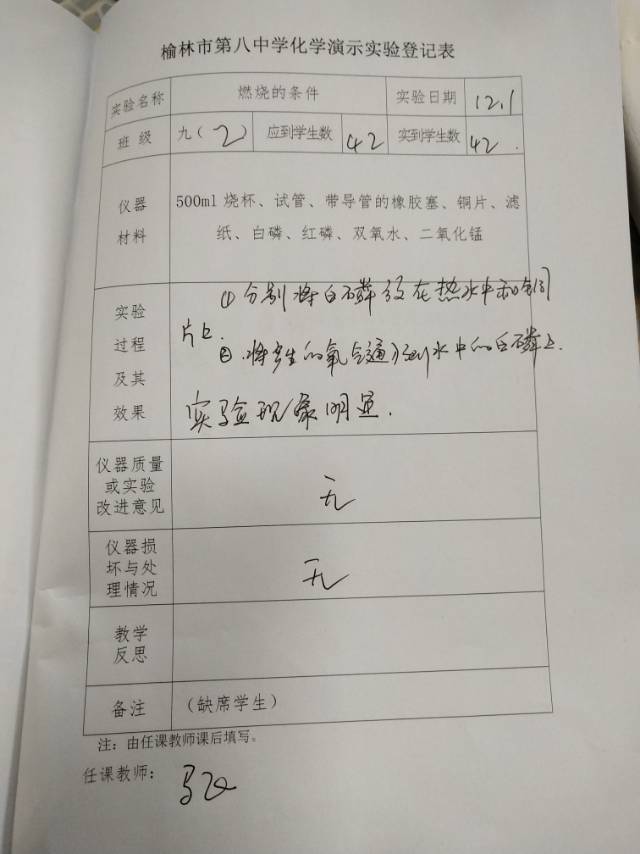 榆林市第八中学化学演示实验登记表
实验名称 燃烧的条件 实验日期 12.1
班 级 九(2) 应到学生数 42 实到学生数 42.
仪器
材料
500ml 烧杯、试管、带导管的橡胶塞、铜片、滤
纸、白磷、红磷、双氧水、二氧化锰
实验
过程
及其
效果
①分别将白磷放在热水中和铜
片上.
②.将产生的氧气通入到水中的白磷上.
实验现象明显.
仪器质量
或实验
改进意见
无
仪器损
坏与处
理情况
无
教学
反思
备注 (缺席学生)
注：由任课教师课后填写。
任课教师：